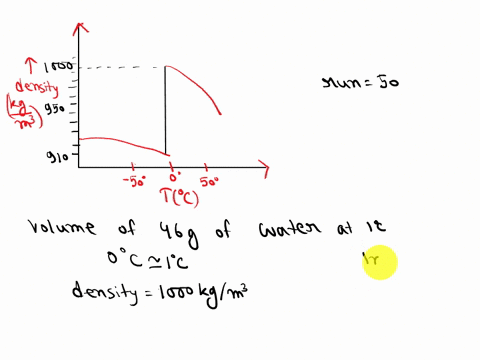 1000
↑
density
(kg/m³)
950
910
-50° 0° 50°
T(°C)
Volume of 46g of water at 1
0°C ≃ 1°C
density = 1000 kg/m³